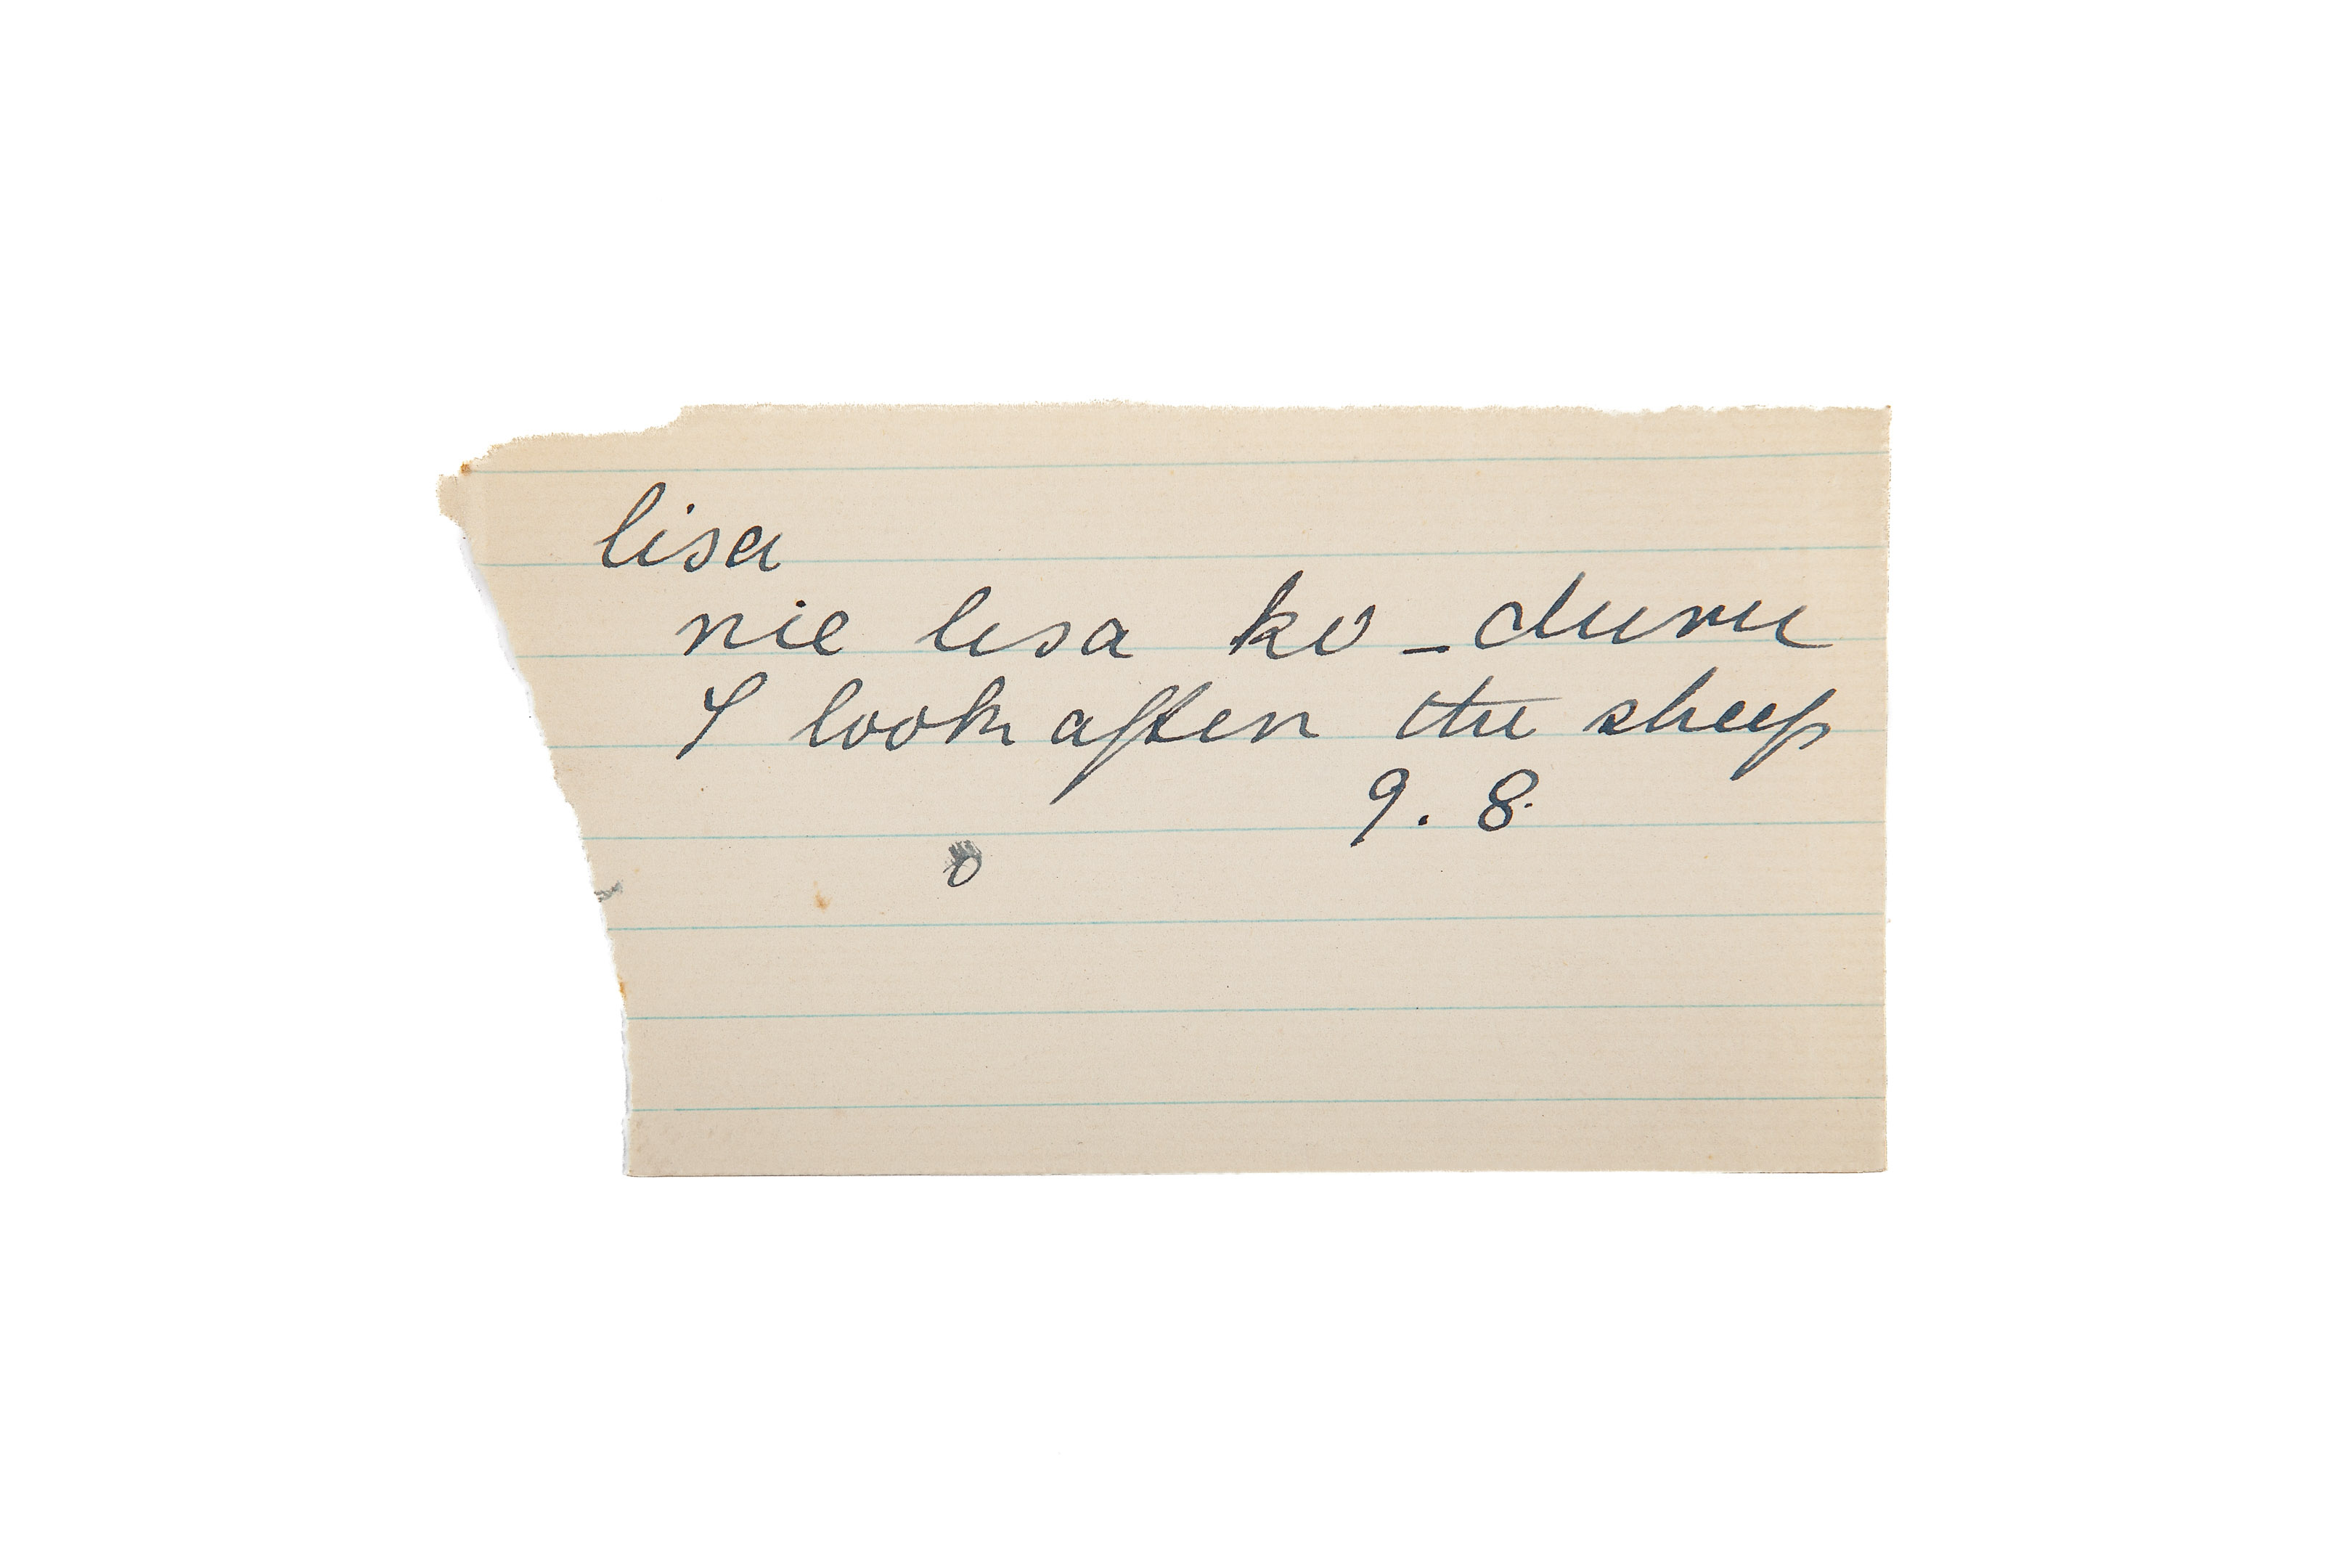 lisa
nie lisa ko_duru
I look after the sheep
9. 8.